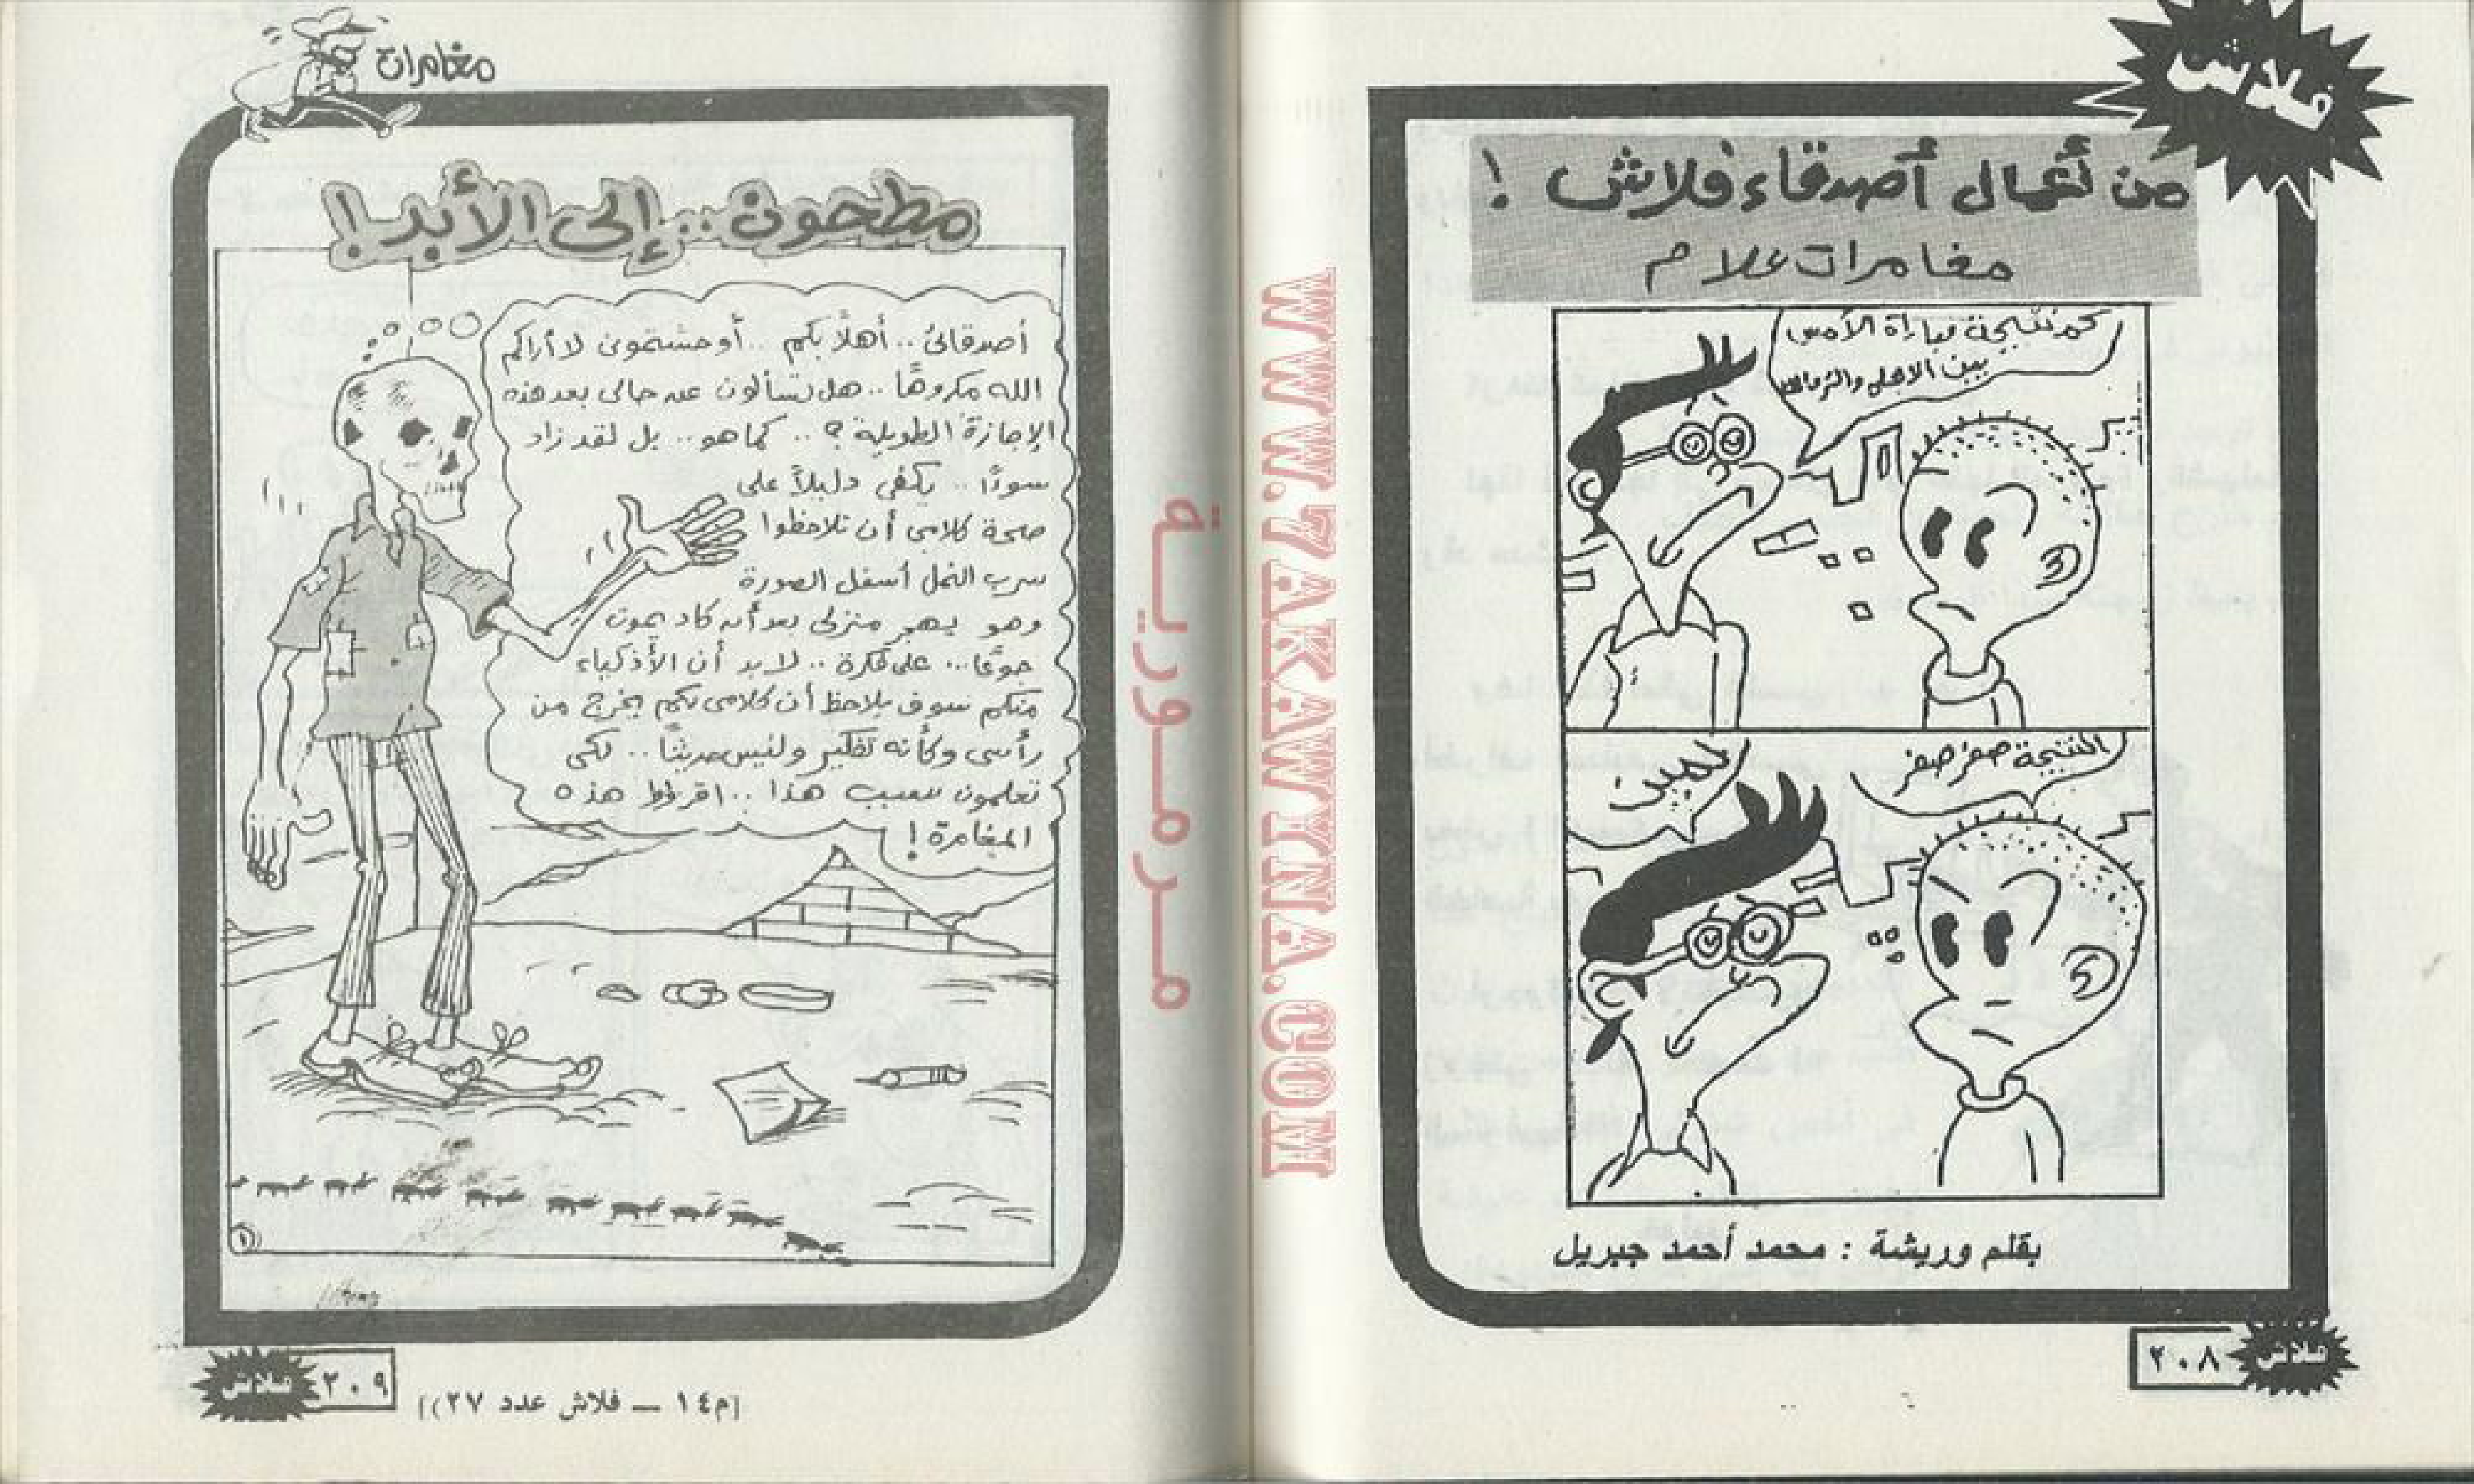 فلاش
من أعمال أصدقاء فلاش !
مغامرات علام
كم نتيجة مباراة الأمس
بين الاهلى والزمالك
النتيجة صفر صفر
لمين
بقلم وريشة : محمد أحمد جبريل
٢٠٨
فلاش
مغامرات
مطحون .. إلى الأبد !
أصدقائى .. أهلاً بكم .. أوحشتمونى لا أراكم
الله مكروهًا .. هل تسألون عن حالى بعد هذه
الإجازة الطويلة ؟ .. كما هو .. بل لقد زاد
سوءًا .. يكفى دليلاً على
صحة كلامى أن تلاحظوا
سرب النمل أسفل الصورة
وهو يهجر منزلى بعد أن كاد يموت
جوعًا ... على فكرة .. لابد أن الأذكياء
منكم سوف يلاحظ أن كلامى لكم يخرج من
رأسى وكأنه تفكير وليس حديثًا .. لكى
تعلمون سبب هذا .. اقرءوا هذه
المغامرة !
١
فلاش
٢٠٩
[م١٤ — فلاش عدد ٢٧)]
مرمورية
WWW.ZAKAWTNA.COM